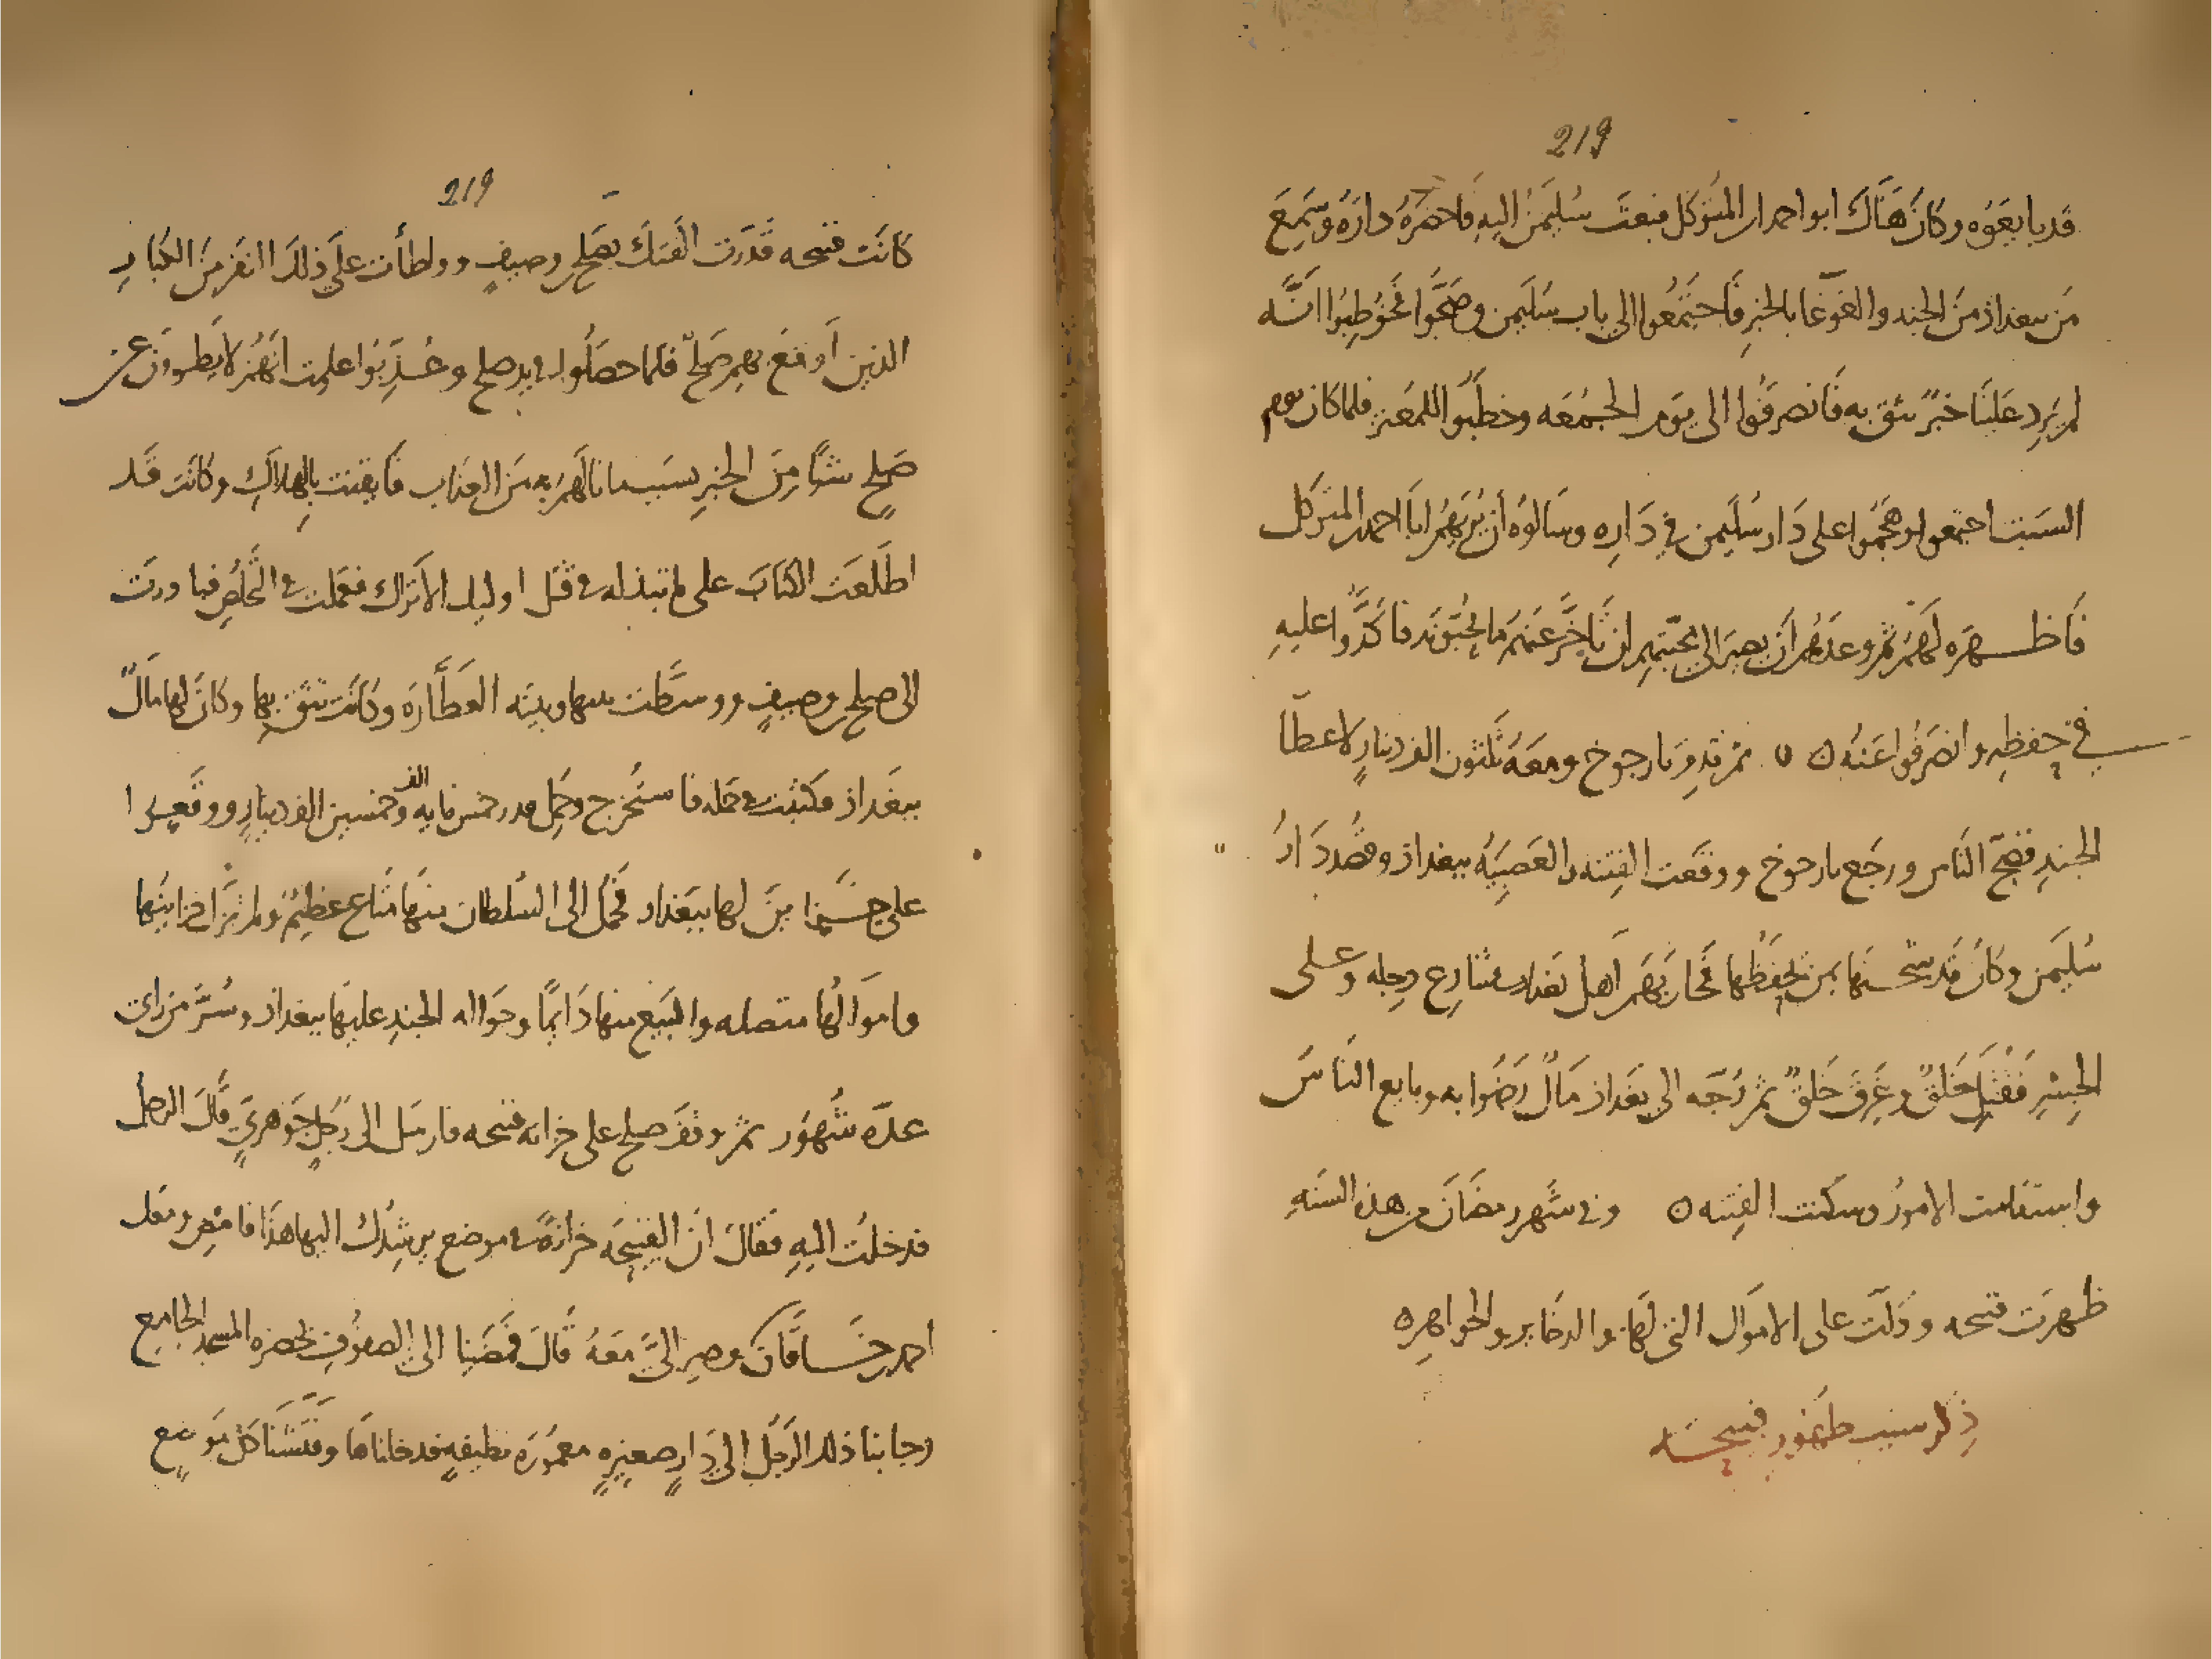 219
قد بايعوه وكان هناك ابو احمد ابن المتوكل فبعث سليمن اليه فاحضره داره وسمع
من ببغداذ من الجند والغوغا بالخبر فاجتمعوا الى باب سليمن وضجوا فخوطبوا انه
لم يرد علينا خبر نثق به فانصرفوا الى يوم الجمعه وخطبوا للمعتز فلما كان يوم
السبت اجتمعوا وهجموا على دار سليمن في داره وسالوه أن يريهم ابا احمد المتوكل
فاظهره لهم ثم وعدهم ان يصير الى محبتهم ان تاخر عنهم ما يحبونه فاكدوا عليه
في حفظه وانصرفوا عنه ه ثم قدم يارجوخ ومعه ثلثون الف دينار لاعطا
الجند فضج الناس ورجع يارجوخ ووقعت الفتنه والعصبيه ببغداذ وقصد دار
سليمن وكان قد شحنها بمن يحفظها فحاربهم اهل بغداد في شارع دجله وعلى
الجسر فقتل خلق وغرق خلق ثم وجه الى بغداذ مال رضوا به وبايع الناس
واستقامت الامور وسكنت الفتنه ه وفي شهر رمضان من هذه السنه
ظهرت قبيحه ودلت على الاموال التي لها والدخاير والجواهر ه
ذكر سبب ظهور قبيحه
219
كانت قبيحه قدرت الفتك بصلح بن وصيف وواطأت على ذلك النفر من الكتاب
الذين أوقع بهم صلح فلما حصلوا في يد صلح وعذبوا علمت انهم لا يطوون عن
صلح شيًا من الخبر بسبب ما نالهم به من العذاب فايقنت بالهلاك وكانت قد
اطلعت الكتاب على ما تبذله في قتل اوليك الاتراك فعملت في التخلص فبادرت
الى صلح بن وصيف ووسطت بينها وبينه العطاره وكانت تثق بها وكان لها مال
ببغداذ فكتبت في حمله فاستخرج وحمل قدر خمس مايه الف وخمسين الف دينار ووقعوا
على خزاين لها ببغداد فحمل الى السلطان منها متاع عظيم ولم تزل خزاينها
واموالها متصله والبيع منها دايمًا وحواله الجند عليها ببغداذ وسر من راى
عده شهور ثم وقف صلح على خزانه قبيحه فارسل الى رجل جوهري قال الرجل
فدخلت اليه فقال ان لقبيحه خزانة في موضع يرشدك اليها هذا فامض ومعك
احمد بن خاقان وصر الى معه قال فمضينا الى الصفوف بحضره المسجد الجامع
وجا بنا ذلك الرجل الى دار صغيره معموره نظيفه فدخلناها وفتشنا كل موضع